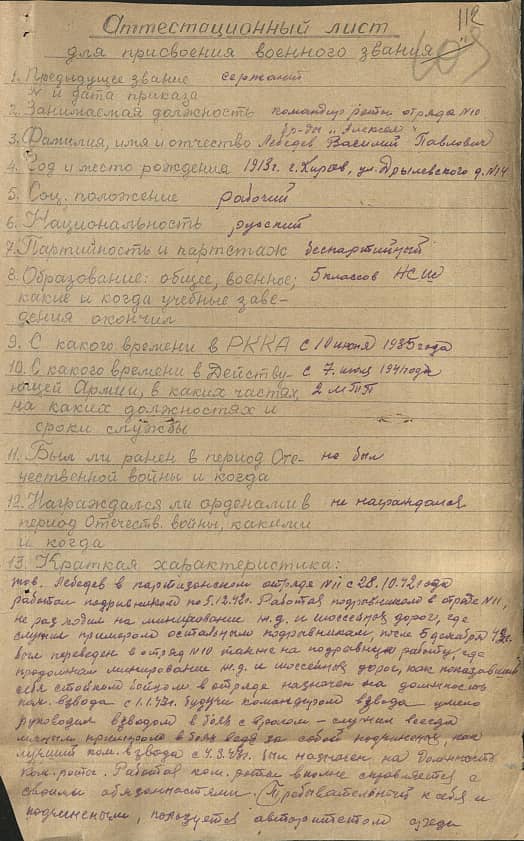 112
Аттестационный лист
для присвоения военного звания
1. Предыдущее звание сержант
№ и дата приказа
2. Занимаемая должность командир роты отряда №10
бр-ды "Алексея"
3. Фамилия, имя и отчество Лебедев Василий Павлович
4. Год и место рождения 1913г. г. Киров, ул. Дрылевского д. №14
5. Соц. положение рабочий
6. Национальность русский
7. Партийность и партстаж беспартийный
8. Образование: общее, военное; 5 классов НСШ
какие и когда учебные заве-
дения окончил
9. С какого времени в РККА с 10 июня 1935 года
10. С какого времени в Действу- с 7 июля 1941 года
ющей Армии, в каких частях,
на каких должностях и
сроки службы
11. Был ли ранен в период Оте- не был
чественной войны и когда
12. Награждался ли орденами в не награждался
период Отечеств. войны, какими
и когда
13. Краткая характеристика:
тов. Лебедев в партизанском отряде №11 с 28.10.42 года
работал подрывником по 5.12.42г. Работая подрывником в отряде №11,
не раз ходил на минирование ж.д. и шоссейных дорог, где
служил примером остальным подрывникам, после 5 декабря 42г.
был переведен в отряд №10 также на подрывную работу, где
продолжал минирование ж.д. и шоссейных дорог, как показавший
себя стойким бойцом в отряде назначен на должность
ком. взвода с 1.1.43г. Будучи командиром взвода умело
руководил взводом в боях с врагом – служил всегда
личным примером в боях ведя за собой подчиненных, как
лучший ком. взвода с 4.3.43г. был назначен на должность
ком. роты. Работая ком. роты вполне справляется с
своими обязанностями. Требовательный к себе и
подчиненным, пользуется авторитетом среди